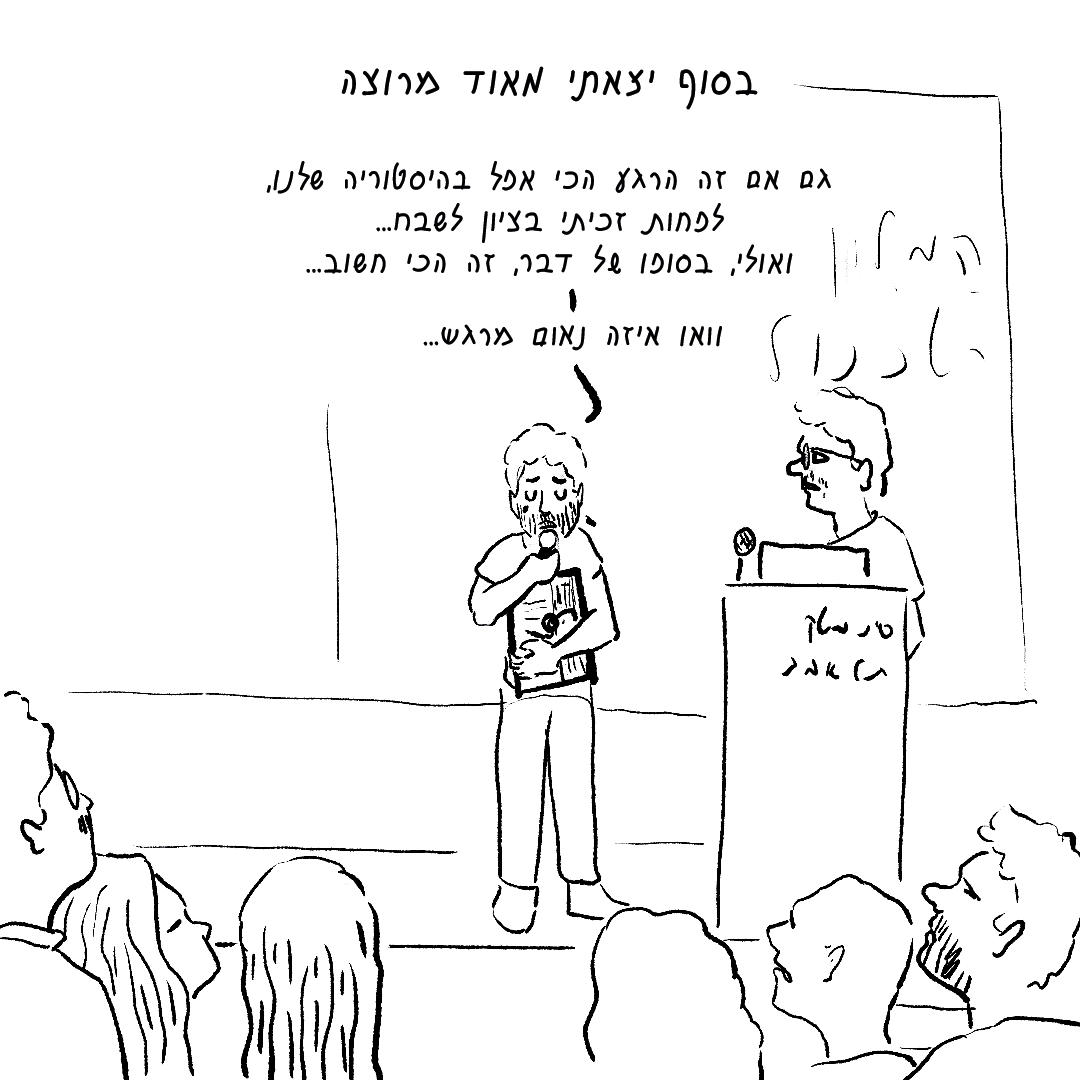 בסוף יצאתי מאוד מרוצה
גם אם זה הרגע הכי אפל בהיסטוריה שלנו,
לפחות זכיתי בציון לשבח...
ואולי, בסופו של דבר, זה הכי חשוב...
וואו איזה נאום מרגש...
סינמטק
תל אביב